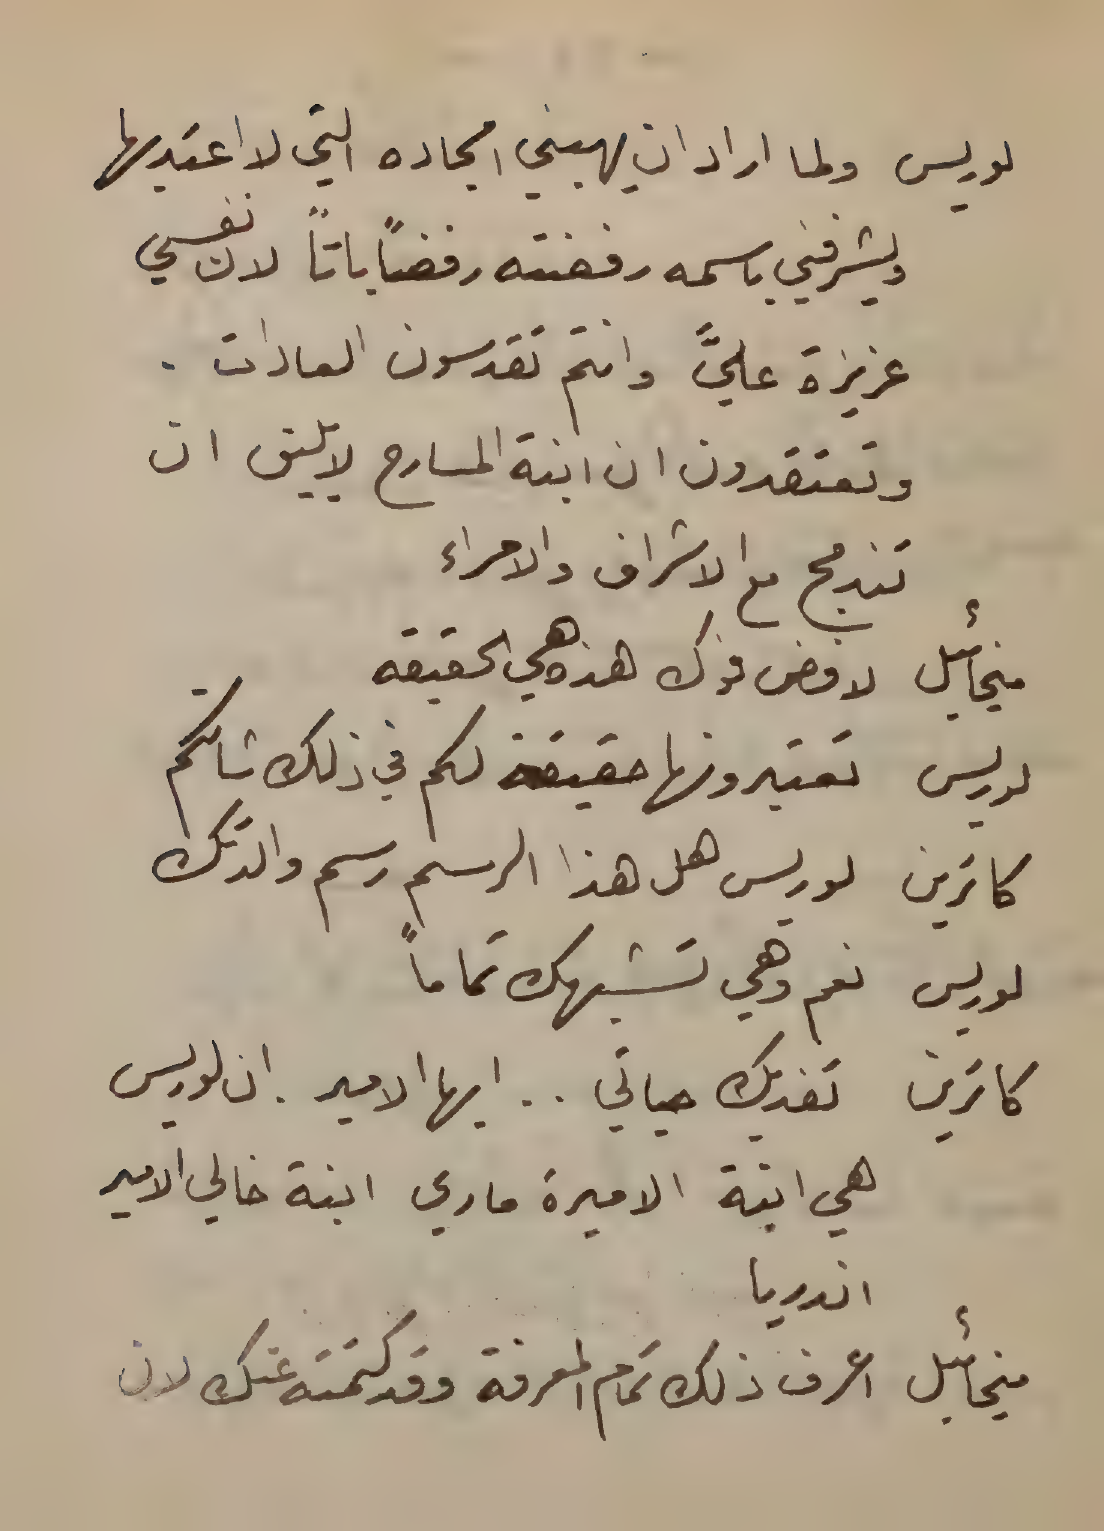 لوريس ولما اراد ان يهبني امجاده التي لا اعتد بها
ويشرفني باسمه رفضته رفضاً باتاً لان نفسي
عزيزة عليَّ وانتم تقدسون العادات .
وتعتقدون ان ابنة المسارح لا يليق ان
تندمج مع الاشراف والامراء
ميخائيل لا فض فوك هذه هي الحقيقه
لوريس تعتبرونها حقيقة لكم في ذلك شأنكم
كاترين لوريس هل هذا الرسم رسم والدتك
لوريس نعم وهي تشبهك تماماً
كاترين تفديك حياتي . . ايها الامير . ان لوريس
هي ابنة الاميرة ماري ابنة خالي الامير
اندريا
ميخائيل اعرف ذلك تمام المعرفة وقد كتمته عنك لان